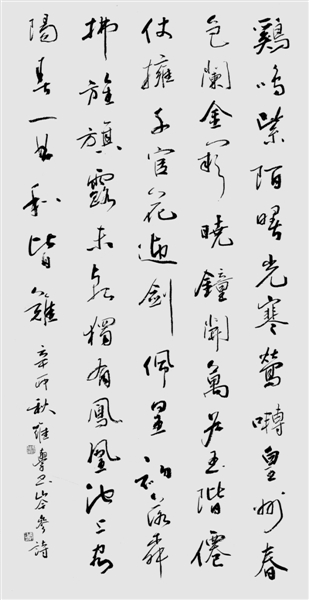 鷄鳴紫陌曙光寒鶯囀皇州春
色闌金闕曉鐘開萬戶玉階僊
仗擁千官花迎劍佩星初落柳
拂旌旗露未乾獨有鳳凰池上客
陽春一曲和皆難 辛卯秋魯書岑參詩